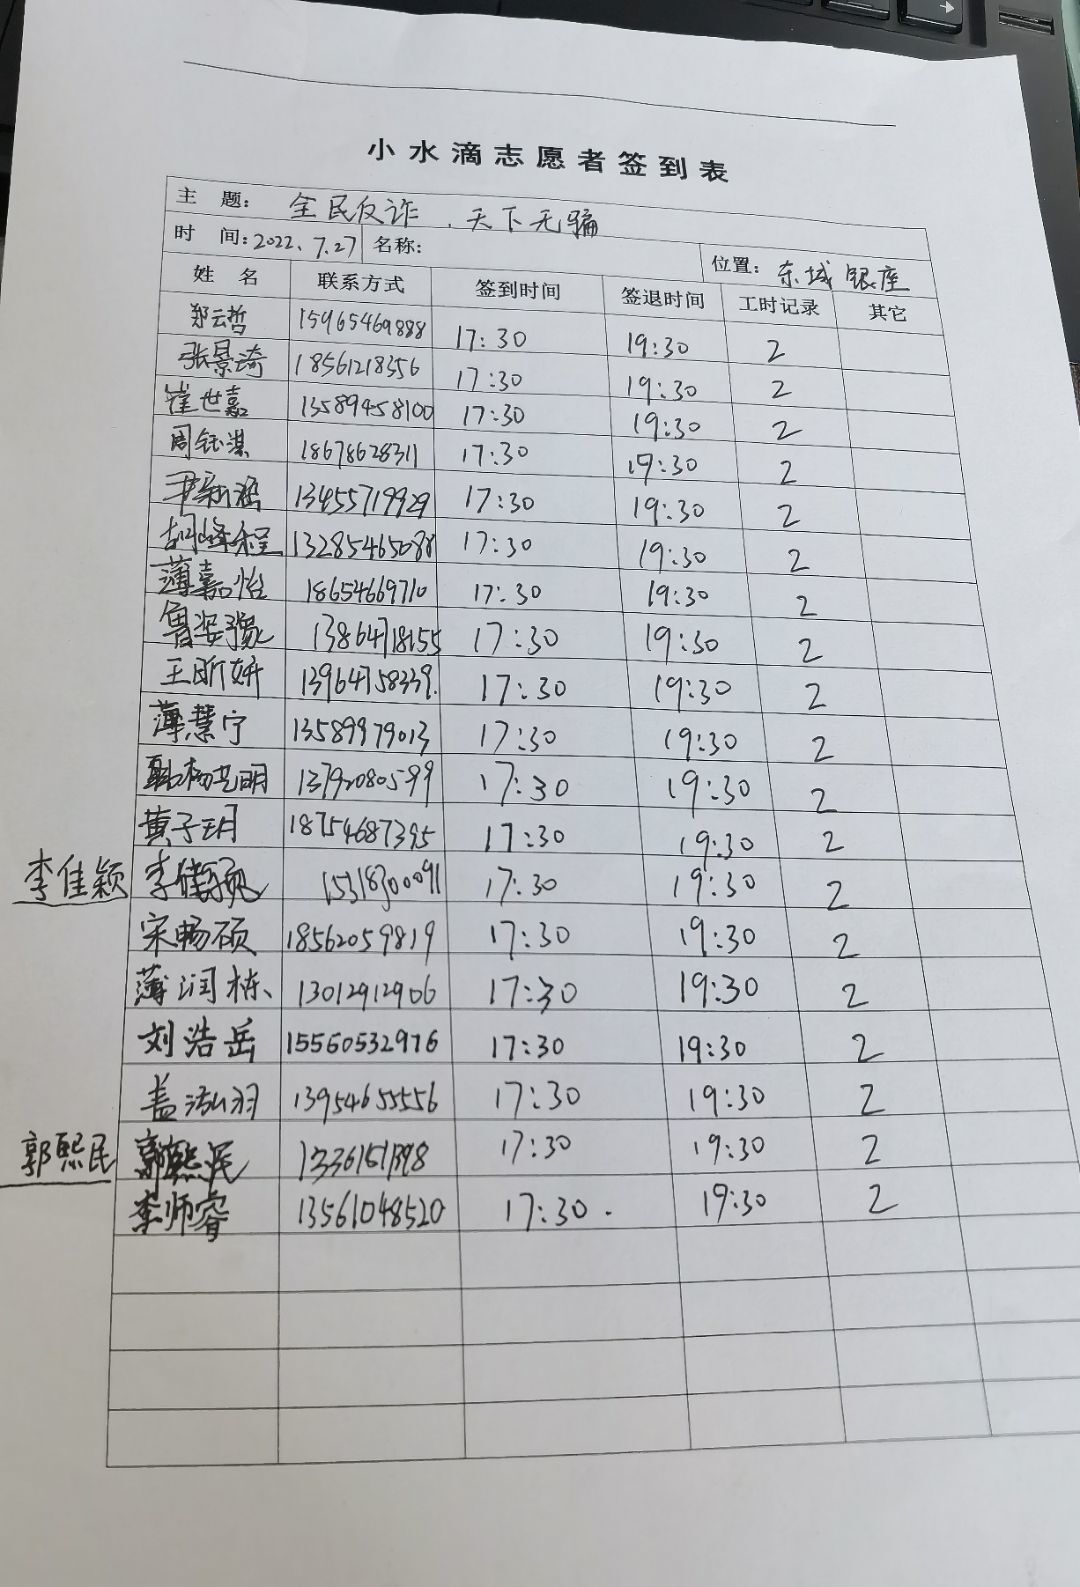 小水滴志愿者签到表
主 题： 全民反诈．天下无骗
时 间：2022、7.27 名称： 位置：东城银座
姓 名 联系方式 签到时间 签退时间 工时记录 其它
郑云哲 15965469888 17:30 19:30 2
张景淇 18561218356 17:30 19:30 2
崔世嘉 13589458100 17:30 19:30 2
周钰淇 18678628311 17:30 19:30 2
尹新涵 13455719929 17:30 19:30 2
胡峰程 13285465088 17:30 19:30 2
薄嘉怡 18654669710 17:30 19:30 2
鲁姿豫 13864718155 17:30 19:30 2
王昕妍 13964758339. 17:30 19:30 2
薄慧宁 13589979013 17:30 19:30 2
13792080599 17:30 19:30 2
黄子玥 18754687395 17:30 19:30 2
李佳颖 李佳颖 15318300091 17:30 19:30 2
宋畅硕 18562059819 17:30 19:30 2
薄润栋、 13012912906 17:30 19:30 2
刘浩岳 15560532976 17:30 19:30 2
盖泓羽 13954655556 17:30 19:30 2
郭熙民 郭熙民 17:30 19:30 2
李师睿 13561048520 17:30. 19:30 2